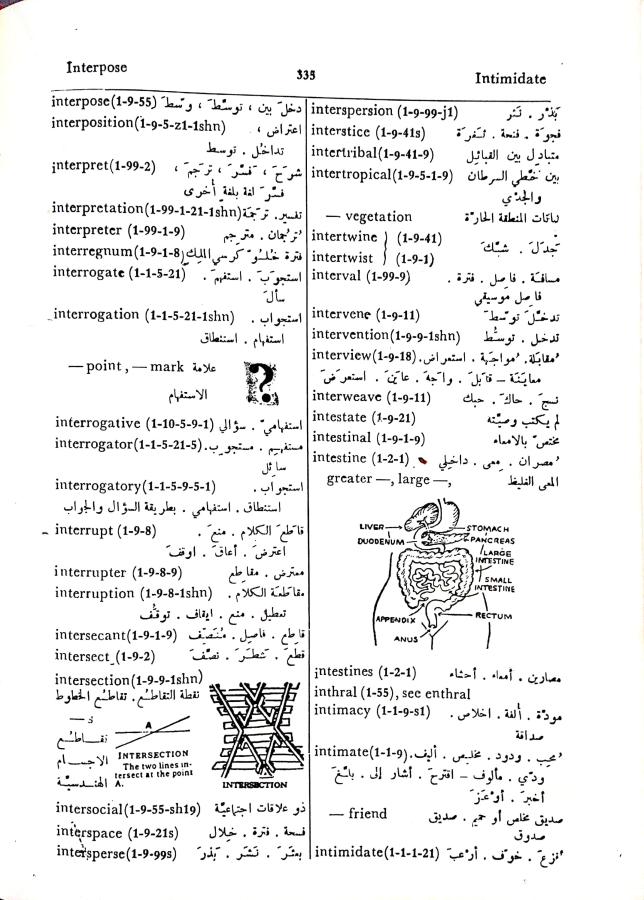 Interpose
335
Intimidate
interpose(1-9-55) دخل بين ، توسَّط ، وسَّط
interposition(1-9-5-z1-1shn) اعتراض ،
تداخُل . توسط
interpret(1-99-2) شرَح ، فسَّر ، ترجَم ،
فسَّر لغة بلغة أخرى
interpretation(1-99-1-21-1shn) تفسير. ترجمة
interpreter (1-99-1-9) تُرجُمان . مترجم
interregnum(1-9-1-8) فترة خُلُوّ كرسي الملك
interrogate (1-1-5-21) استجوَبَ . استفهم .
سأل
interrogation (1-1-5-21-1shn) استجواب .
استفهام . استنطاق
— point, — mark علامة
الاستفهام
interrogative (1-10-5-9-1) استفهاميّ . سؤالي
interrogator(1-1-5-21-5) مستفهِم . مستجوِب .
سائل
interrogatory(1-1-5-9-5-1) استجواب .
استنطاق . استفهامي . بطريقة السؤال والجواب
interrupt (1-9-8) قاطع الكلام . منع .
اعترض . أعاق . اوقف
interrupter (1-9-8-9) معترض . مقاطع
interruption (1-9-8-1shn) مقاطعة الكلام .
تعطيل . منع . ايقاف . توقُّف
intersecant(1-9-1-9) قاطع . فاصل . مُنَصِّف
intersect (1-9-2) قطع . شطَر . نصَّف
intersection(1-9-9-1shn)
نقطة التقاطُع . تقاطع الخطوط
— s
تقاطُع
الاجسام
الهندسيَّة
A
INTERSECTION
The two lines in-
tersect at the point
A.
INTERSECTION
intersocial(1-9-55-sh19) ذو علاقات اجتماعيَّة
interspace (1-9-21s) فسحة . فترة . خلال
intersperse(1-9-99s) بعثَر . نَثَر . بَذَر
interspersion (1-9-99-j1) بَذْر . نَثر
interstice (1-9-41s) فجوة . فتحة . ثُغرة
intertribal(1-9-41-9) متبادل بين القبائل
intertropical(1-9-5-1-9) بين خطَّي السرطان
والجدي
— vegetation نباتات المنطقة الحارَّة
intertwine } (1-9-41) جَدَل . شبَّك
intertwist } (1-9-1)
interval (1-99-9) مسافة . فاصل . فترة .
فاصل موسيقي
intervene (1-9-11) تدخَّل توسَّط
intervention(1-9-9-1shn) تدخل . توسُّط
interview(1-9-18) مُقابلة. مُواجهة . استعراض .
معاينة – قابَل . واجه . عايَن . استعرض
interweave (1-9-11) نسج . حاك . حبك
intestate (1-9-21) لم يكتب وصيَّته
intestinal (1-9-1-9) مختصّ بالامعاء
intestine (1-2-1) مُصران . مِعى . داخيلي
greater —, large —, المعى الغليظ
LIVER
DUODENUM
STOMACH
PANCREAS
LARGE
INTESTINE
SMALL
INTESTINE
APPENDIX
RECTUM
ANUS
intestines (1-2-1) مصارين . أمعاء . أحشاء
inthral (1-55), see enthral
intimacy (1-1-9-s1) مودَّة . ألفة . اخلاص .
صداقة
intimate(1-1-9) مُحِب . ودود . مخلص . أليف .
ودّي . مألوف – اقترح . أشار الى . بالَغ
أخبر . أوعَز
— friend صديق مخلص أو حميم . صديق
صدوق
intimidate(1-1-1-21) أفزع . خوَّف . أرعب